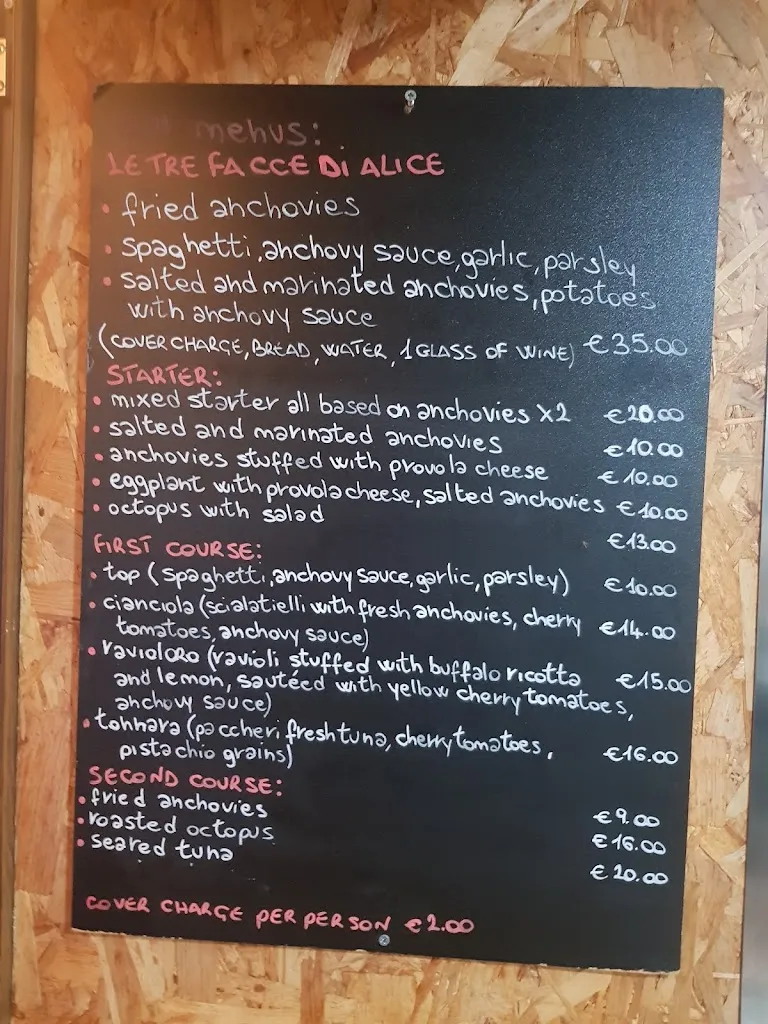 menus:
LE TRE FACCE DI ALICE
• fried anchovies
• spaghetti, anchovy sauce, garlic, parsley
• salted and marinated anchovies, potatoes
with anchovy sauce
(COVER CHARGE, BREAD, WATER, 1 GLASS OF WINE) €35.00
STARTER:
• mixed starter all based on anchovies X2 €20.00
• salted and marinated anchovies €10.00
• anchovies stuffed with provola cheese €10.00
• eggplant with provola cheese, salted anchovies €10.00
• octopus with salad €13.00
FIRST COURSE:
• top (spaghetti, anchovy sauce, garlic, parsley) €10.00
• cianciola (scialatielli with fresh anchovies, cherry €14.00
tomatoes, anchovy sauce)
• ravioloro (ravioli stuffed with buffalo ricotta €15.00
and lemon, sautéed with yellow cherry tomatoes,
anchovy sauce)
• tonnara (paccheri fresh tuna, cherry tomatoes, €16.00
pistachio grains)
SECOND COURSE:
• fried anchovies €9.00
• roasted octopus €16.00
• seared tuna €20.00
COVER CHARGE PER PERSON €2.00